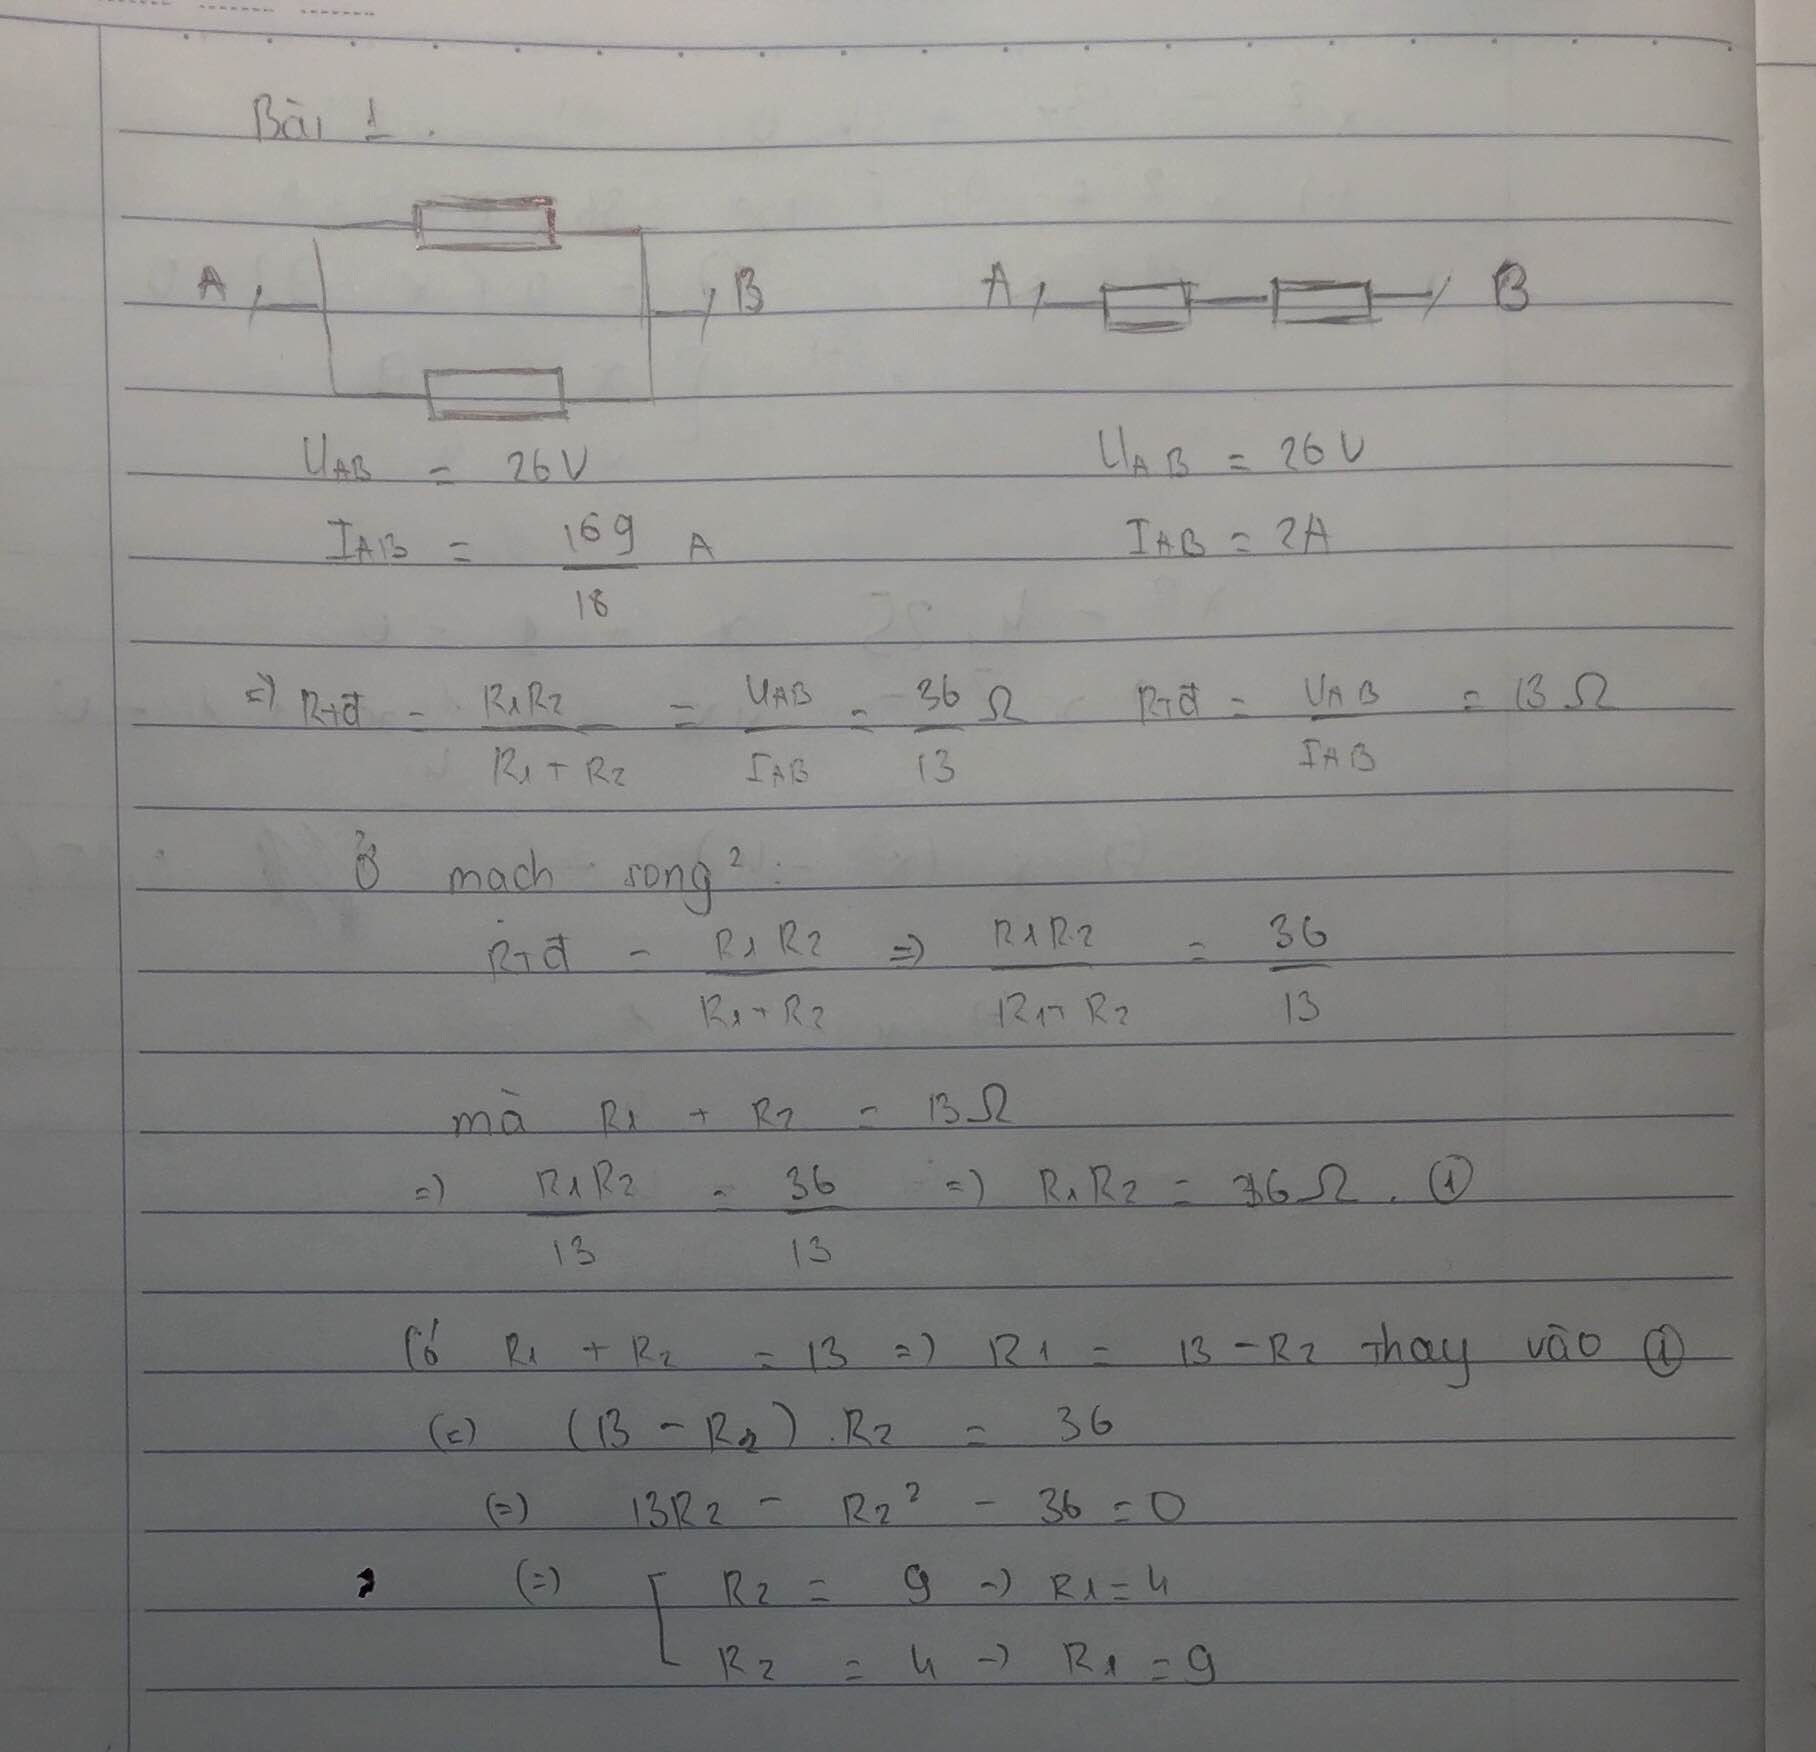 Bài 1.
A B A B
U_AB = 26V U_AB = 26V
I_AB = 169/18 A I_AB = 2A
=) Rtđ = R1R2/(R1 + R2) = U_AB/I_AB = 36/13 Ω Rtđ = U_AB/I_AB = 13 Ω
Ở mạch song²:
Rtđ = R1R2/(R1 + R2) =) R1R2/(R1 + R2) = 36/13
mà R1 + R2 = 13Ω
=) R1R2/13 = 36/13 =) R1R2 = 36Ω. ①
Có R1 + R2 = 13 =) R1 = 13 - R2 thay vào ①
(=) (13 - R2).R2 = 36
(=) 13R2 - R2² - 36 = 0
(=) [ R2 = 9 -) R1 = 4
R2 = 4 -) R1 = 9